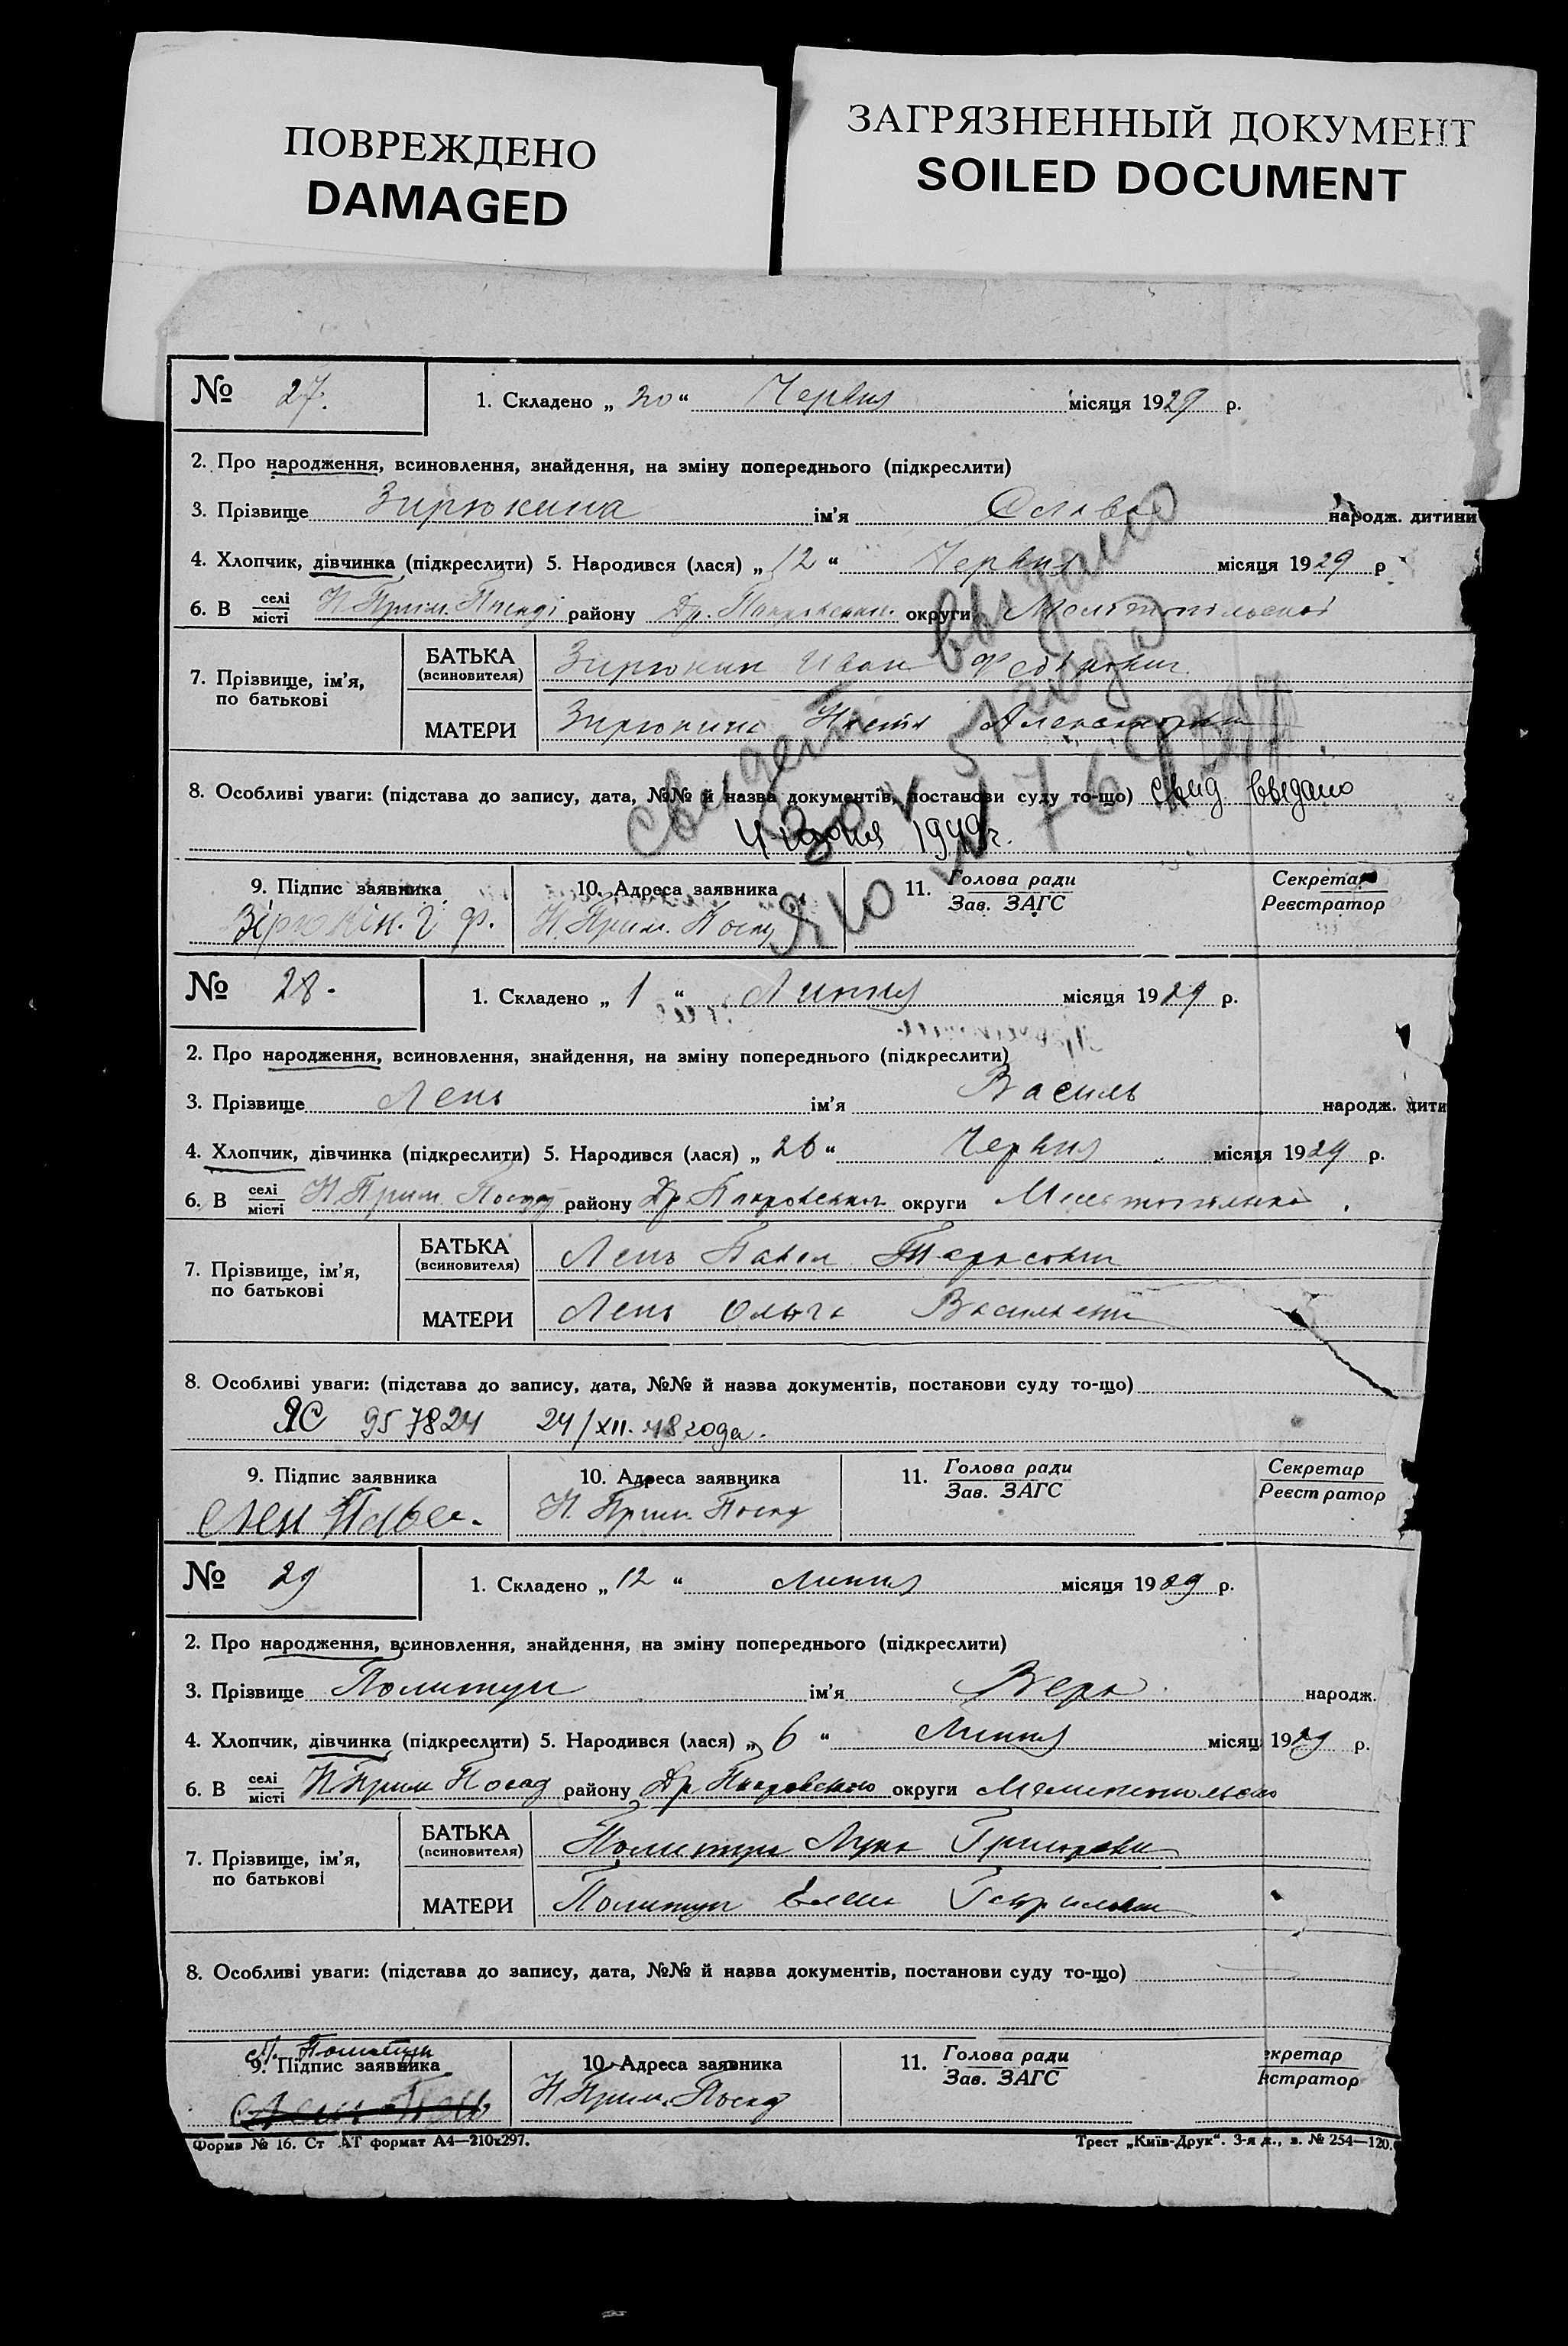 ПОВРЕЖДЕНО
DAMAGED
ЗАГРЯЗНЕННЫЙ ДОКУМЕНТ
SOILED DOCUMENT
№ 27. 1. Складено „ 20 “ Червня місяця 1929 р.
2. Про народження, всиновлення, знайдення, на зміну попереднього (підкреслити)
3. Прізвище Зирюкина ім’я народж. дитини
4. Хлопчик, дівчинка (підкреслити) 5. Народився (лася) „ 12 “ Червня місяця 1929 р
6. В селі місті Н. Прим. Посаді району Др. Покровськ. округи Мелітопільської
7. Прізвище, ім’я, по батькові
БАТЬКА (всиновителя) Зирюкин Иван Федорович
МАТЕРИ Зирюкина Настя
8. Особливі уваги: (підстава до запису, дата, №№ й назва документів, постанови суду то-що) свид выдано
4 июня 1949г.
Свидет выдано
51 года
ЯЮ № 769397
9. Підпис заявника 10. Адреса заявника 11. Голова ради Секретар
Зав. ЗАГС Реєстратор
Зірюкін. І Ф. Н. Прим. Посад
№ 28. 1. Складено „ 1 “ Липня місяця 1929 р.
2. Про народження, всиновлення, знайдення, на зміну попереднього (підкреслити)
3. Прізвище Лень ім’я Василь народж. дити
4. Хлопчик, дівчинка (підкреслити) 5. Народився (лася) „ 26 “ Червня місяця 1929 р.
6. В селі місті Н. Прим. Посад району Др. Покровськог округи
7. Прізвище, ім’я, по батькові
БАТЬКА (всиновителя) Лень Павел Тарасович
МАТЕРИ Лень Ольга Васильевн
8. Особливі уваги: (підстава до запису, дата, №№ й назва документів, постанови суду то-що)
ЯС 957824 24/XII. 48 года.
9. Підпис заявника 10. Адреса заявника 11. Голова ради Секретар
Зав. ЗАГС Реєстратор
Лен Павел. Н. Прим. Посад
№ 29 1. Складено „ 12 “ Липня місяця 1929 р.
2. Про народження, всиновлення, знайдення, на зміну попереднього (підкреслити)
3. Прізвище Политуч ім’я Вера народж.
4. Хлопчик, дівчинка (підкреслити) 5. Народився (лася) „ 6 “ Липня місяц 1929 р.
6. В селі місті Н Прим Посад району Др. Покровського округи
7. Прізвище, ім’я, по батькові
БАТЬКА (всиновителя) Политуч Лука Григорови
МАТЕРИ Политуч Елена Гаврилови
8. Особливі уваги: (підстава до запису, дата, №№ й назва документів, постанови суду то-що)
9. Підпис заявника 10. Адреса заявника 11. Голова ради кретар
Зав. ЗАГС стратор
Н. Прим. Посад
Форма № 16. Ст АТ формат А4—210х297. Трест „Київ-Друк“. 3-я д., з. № 254—120.